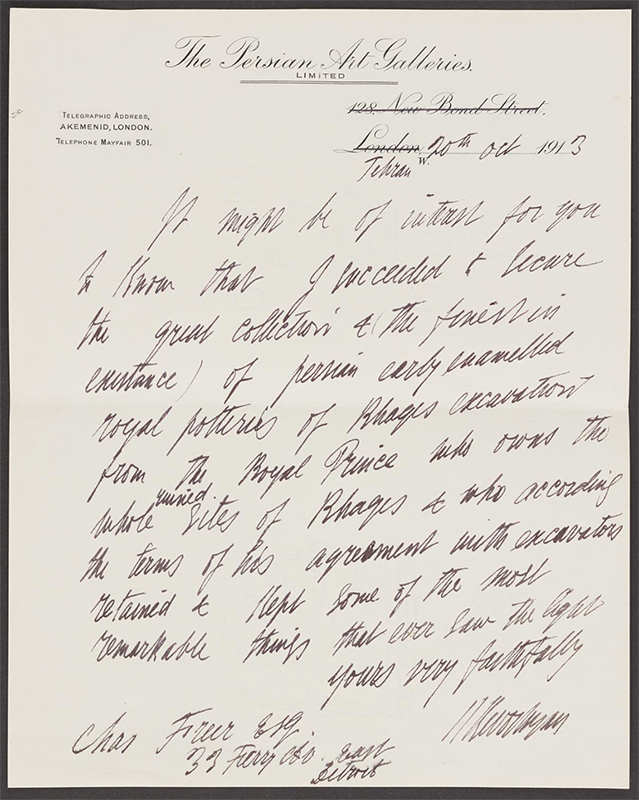 The Persian Art Galleries.
LIMITED
128. New Bond Street.
TELEGRAPHIC ADDRESS,
AKEMENID, LONDON.
TELEPHONE MAYFAIR 501.
London, W. 20th oct 1913
Tehran
It might be of interest for you
to know that I succeeded to secure
the great collection & (the finest in
existance) of persian early enamelled
royal potteries of Rhages excavation
from the Royal Prince who owns the
whole ruined sites of Rhages & who according
the terms of his agreement with excavators
retained & kept some of the most
remarkable things that ever saw the light
yours very faithfully
H Kevorkian
Chas Freer Esq
33 Ferry East
Detroit